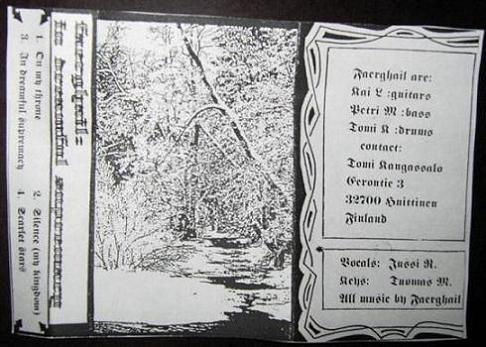 Faerghail:
In dreamful supremacy
1. On my throne
2. Silence (my kingdom)
3. In dreamful supremacy
4. Scarlet stars
Faerghail are:
Kai L :guitars
Petri M :bass
Tomi K :drums
contact:
Tomi Kangassalo
Eerontie 3
32700 Huittinen
Finland
Vocals: Jussi R.
Keys: Tuomas M.
All music by Faerghail